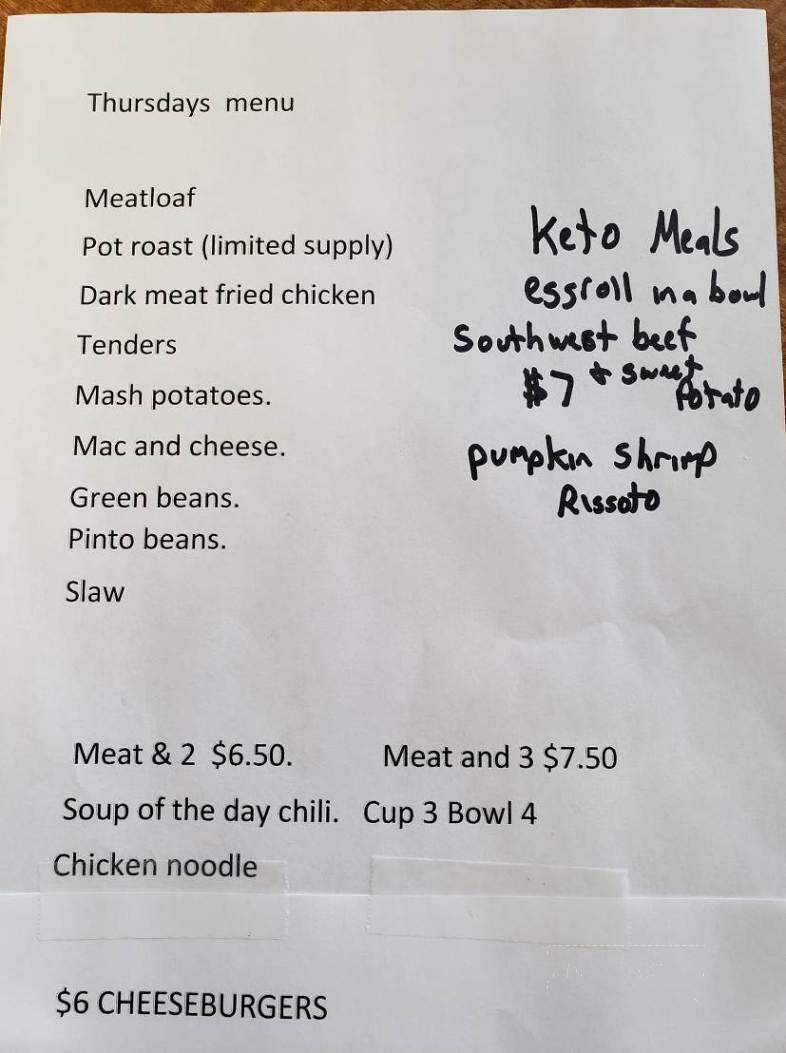 Thursdays menu
Meatloaf
Pot roast (limited supply)
Dark meat fried chicken
Tenders
Mash potatoes.
Mac and cheese.
Green beans.
Pinto beans.
Slaw
Keto Meals
eggroll in a bowl
Southwest beef
$7 + sweet
Potato
pumpkin shrimp
Rissoto
Meat & 2 $6.50. Meat and 3 $7.50
Soup of the day chili. Cup 3 Bowl 4
Chicken noodle
$6 CHEESEBURGERS